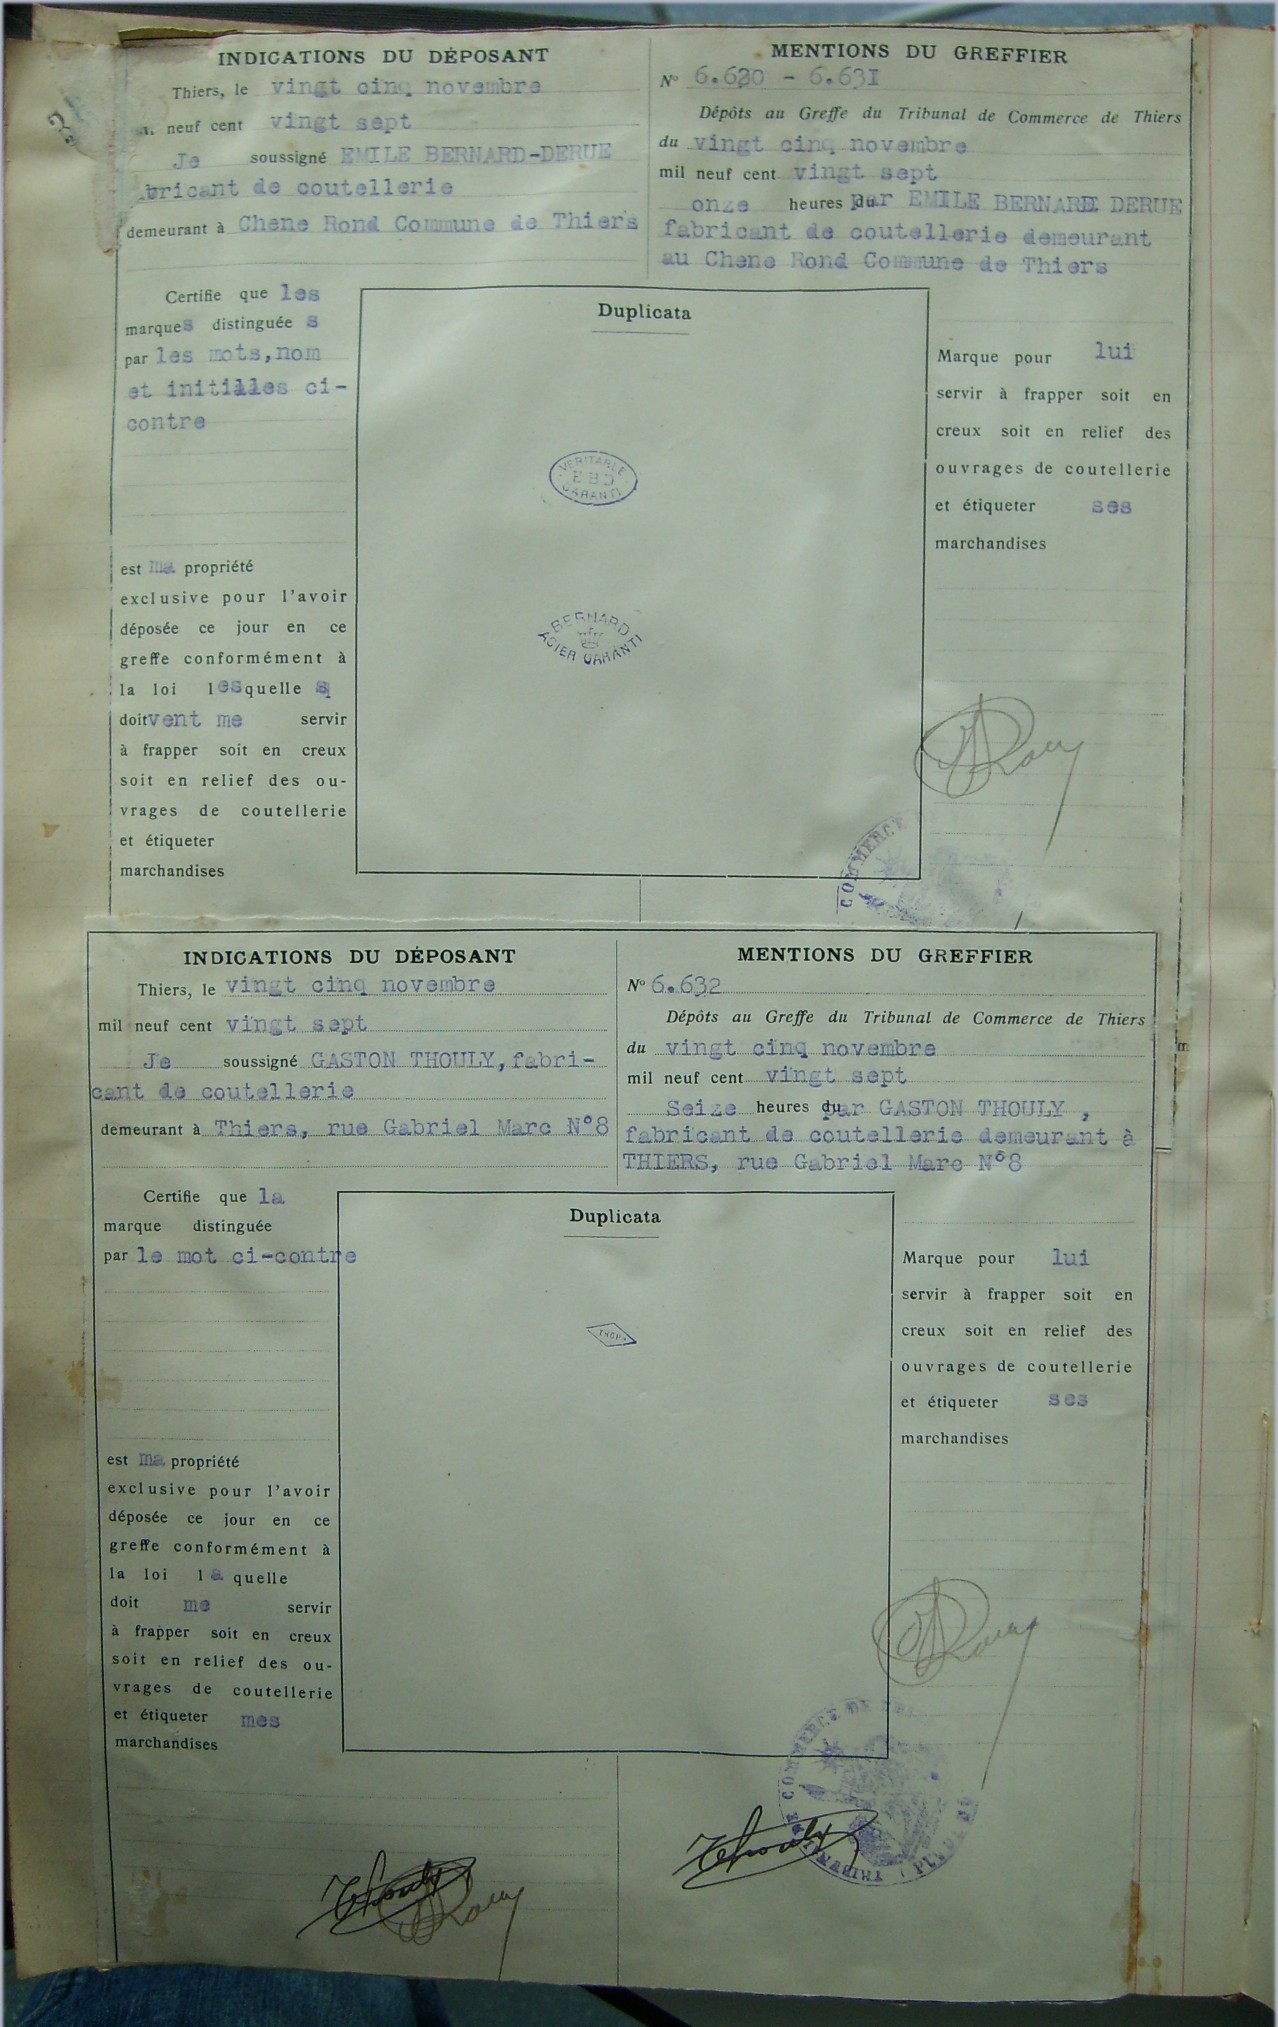 INDICATIONS DU DÉPOSANT
Thiers, le vingt cinq novembre
neuf cent vingt sept
Je soussigné EMILE BERNARD-DERUE
bricant de coutellerie
demeurant à Chene Rond Commune de Thiers
MENTIONS DU GREFFIER
N° 6.630 - 6.631
Dépôts au Greffe du Tribunal de Commerce de Thiers
du vingt cinq novembre
mil neuf cent vingt sept
onze heures par EMILE BERNARD DERUE
fabricant de coutellerie demeurant
au Chene Rond Commune de Thiers
Certifie que les
marques distinguée s
par les mots, nom
et initialles ci-
contre
est ma propriété
exclusive pour l'avoir
déposée ce jour en ce
greffe conformément à
la loi lesquelle s
doitvent me servir
à frapper soit en creux
soit en relief des ou-
vrages de coutellerie
et étiqueter
marchandises
Duplicata
VERITABLE
E B D
GARANTI
BERNARD
ACIER GARANTI
Marque pour lui
servir à frapper soit en
creux soit en relief des
ouvrages de coutellerie
et étiqueter ses
marchandises
COMMERCE
INDICATIONS DU DÉPOSANT
Thiers, le vingt cinq novembre
mil neuf cent vingt sept
Je soussigné GASTON THOULY, fabri-
cant de coutellerie
demeurant à Thiers, rue Gabriel Marc N°8
MENTIONS DU GREFFIER
N° 6.632
Dépôts au Greffe du Tribunal de Commerce de Thiers
du vingt cinq novembre
mil neuf cent vingt sept
Seize heures par GASTON THOULY ,
fabricant de coutellerie demeurant à
THIERS, rue Gabriel Marc N°8
Certifie que la
marque distinguée
par le mot ci-contre
est ma propriété
exclusive pour l'avoir
déposée ce jour en ce
greffe conformément à
la loi la quelle
doit me servir
à frapper soit en creux
soit en relief des ou-
vrages de coutellerie
et étiqueter mes
marchandises
Duplicata
Marque pour lui
servir à frapper soit en
creux soit en relief des
ouvrages de coutellerie
et étiqueter ses
marchandises
COMMERCE DE
Thouly
Thouly